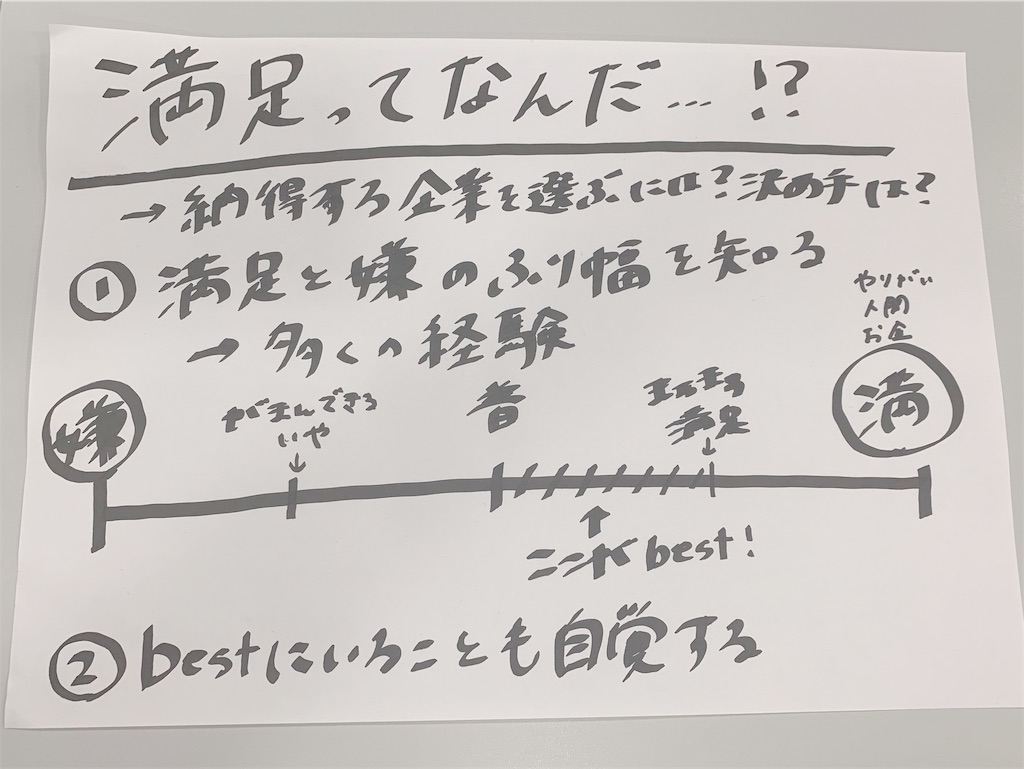 満足ってなんだ…!?
→納得する企業を選ぶには?決め手は?
① 満足と嫌のふり幅を知る
→多くの経験
やりがい
人間
お金
嫌
がまんできる
いや
普
まあまあ
満足
満
ここがbest!
② bestにいることも自覚する